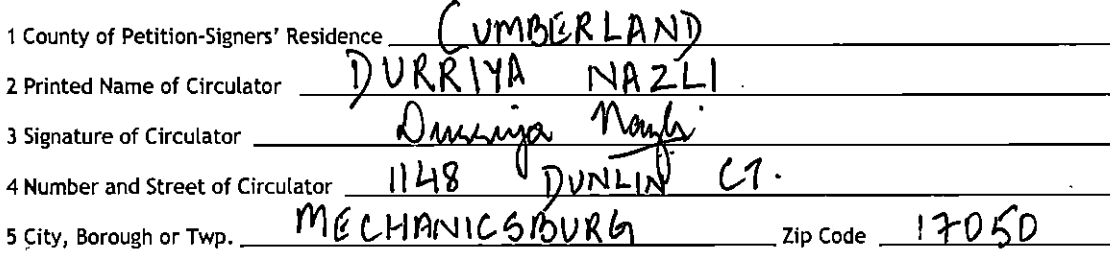 1 County of Petition-Signers' Residence CUMBERLAND
2 Printed Name of Circulator DURRIYA NAZLI
3 Signature of Circulator Durriya Nazli
4 Number and Street of Circulator 1148 DUNLIN CT.
5 City, Borough or Twp. MECHANICSBURG Zip Code 17050